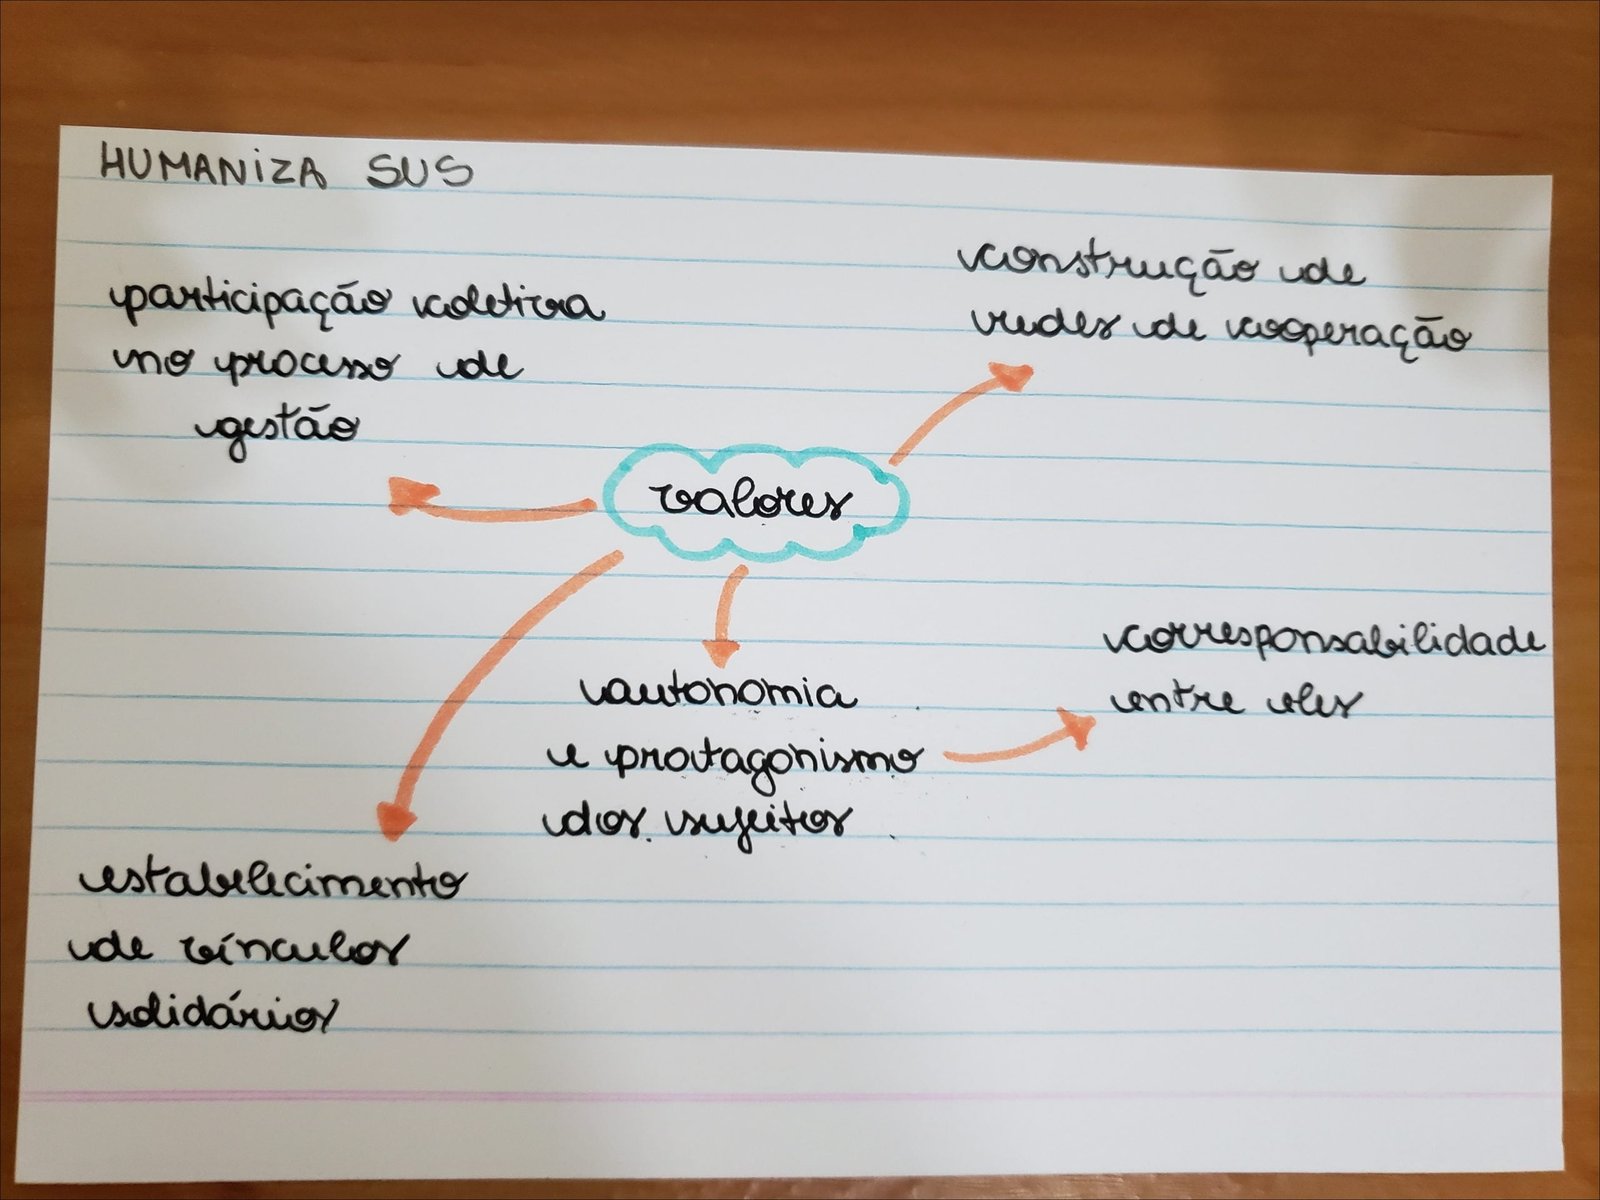 HUMANIZA SUS
participação coletiva
no processo de
gestão
construção de
redes de cooperação
valores
autonomia
e protagonismo
dos sujeitos
corresponsabilidade
entre eles
estabelecimento
de vínculos
solidários